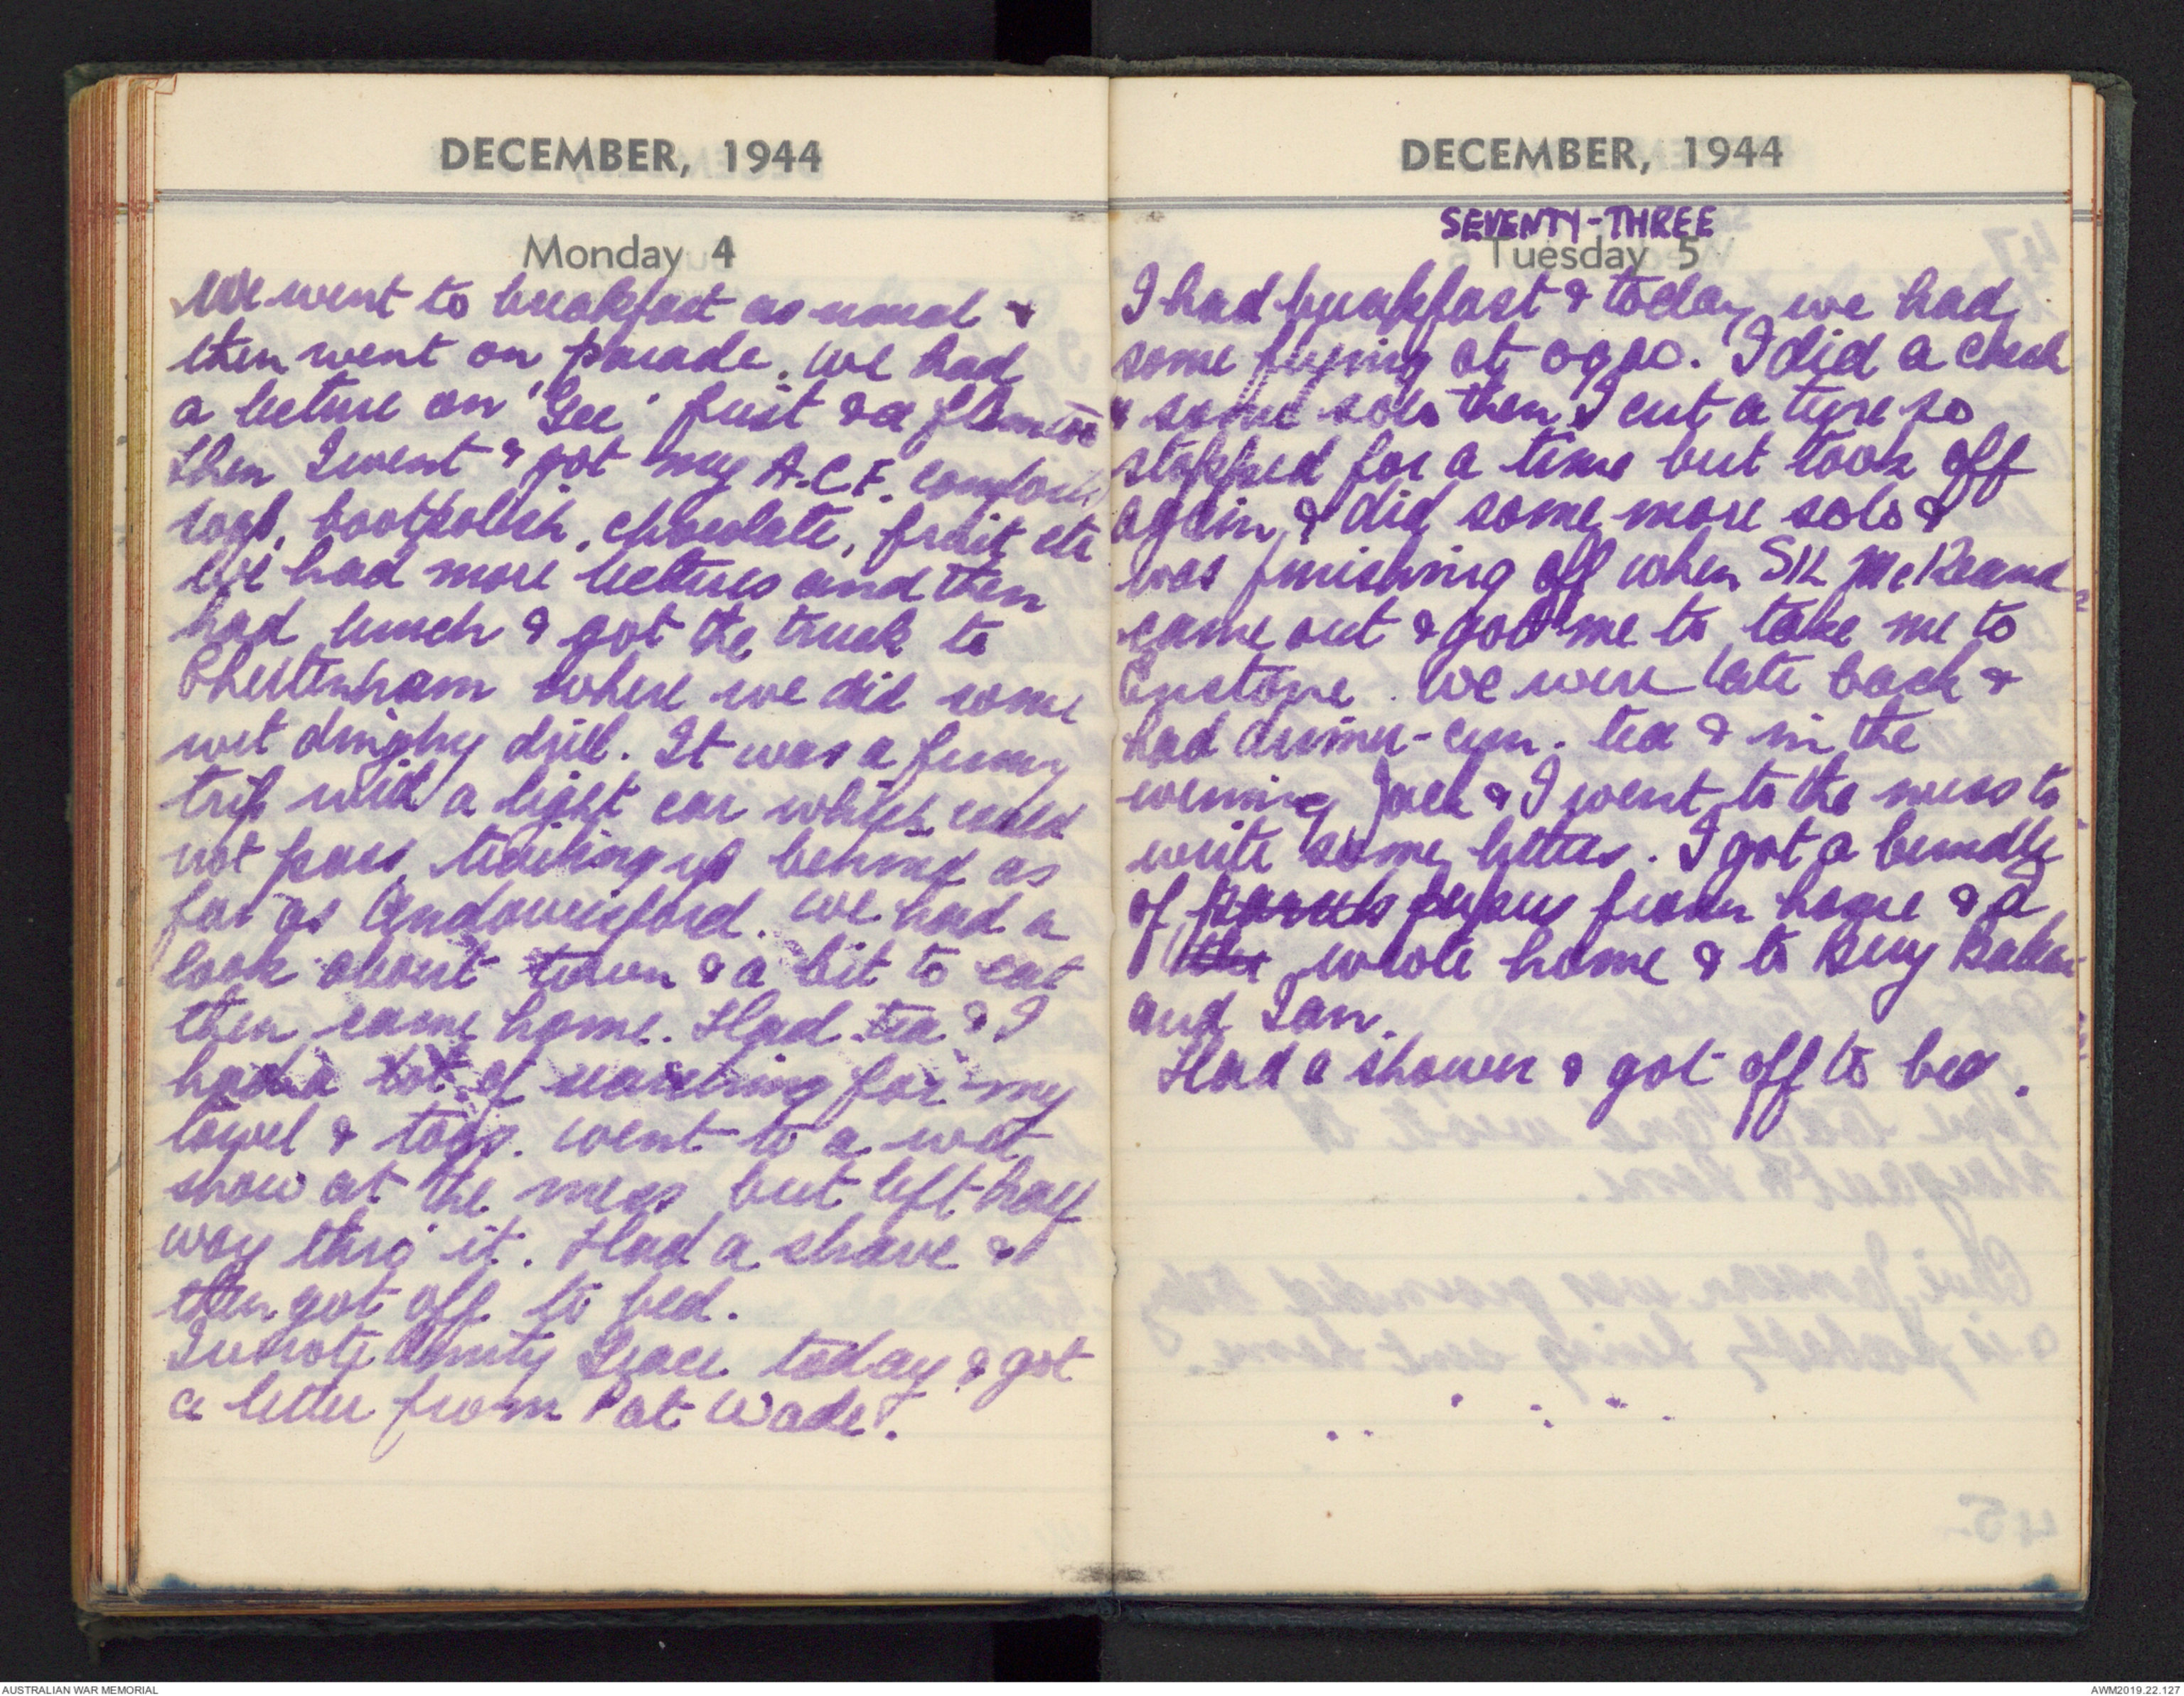 DECEMBER, 1944
Monday 4
We went to breakfast as usual &
then went on parade. We had
a lecture on 'Gee' first & a film
then I went & got my A.C.F. comforts
soap, bootpolish, chocolate, fruit etc
We had more lectures and then
had lunch & got the truck to
Cheltenham where we did some
wet dinghy drill. It was a funny
trip with a light car which could
not pass, trailing us behind as
far as Andoversford. We had a
look about town & a bit to eat
then came home. Had tea & I
had a lot of searching for my
towel & togs. Went to a wet
show at the mess but left half
way thro' it. Had a shave &
then got off to bed.
I wrote Grace today & got
a letter from Pat Wade.
DECEMBER, 1944
SEVENTY-THREE
Tuesday 5
I had breakfast & today we had
some flying at 0900. I did a check
& some solo then I cut a tyre so
stopped for a time but took off
again & did some more solo &
was finishing off when S/L McKeand
came out & got me to take me to
Enstone. We were late back &
had dinner-cum-tea & in the
evening Jack & I went to the mess to
write some letters. I got a bundle
of parcels papers from home & a
I wrote home & to Baker
and Ian.
Had a shower & got off to bed.
AUSTRALIAN WAR MEMORIAL
AWM2019.22.127